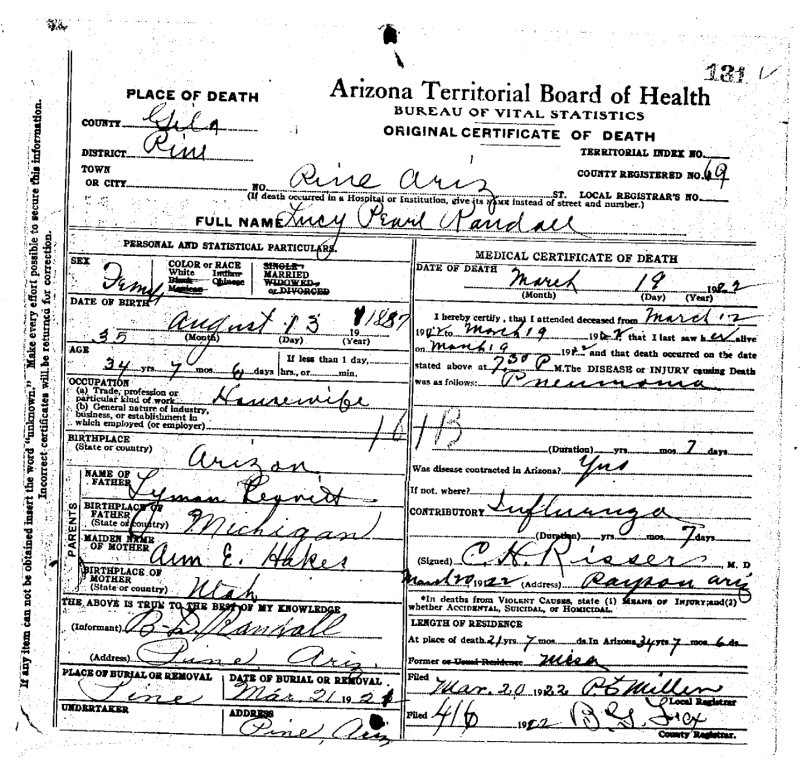 131
Arizona Territorial Board of Health
BUREAU OF VITAL STATISTICS
ORIGINAL CERTIFICATE OF DEATH
PLACE OF DEATH
COUNTY Gila
DISTRICT Pine
TOWN
OR CITY
TERRITORIAL INDEX NO.
COUNTY REGISTERED NO. 69
NO. Pine Ariz ST. LOCAL REGISTRAR'S NO.
(If death occurred in a Hospital or Institution, give its NAME instead of street and number.)
FULL NAME Lucy Pearl Randall
PERSONAL AND STATISTICAL PARTICULARS.
SEX
Female
COLOR or RACE
White Indian
Black Chinese
Mexican
SINGLE
MARRIED
WIDOWED
or DIVORCED
DATE OF BIRTH
August 13 1887
35 (Month) (Day) (Year)
AGE
34 yrs 7 mos 6 days
If less than 1 day,
hrs., or min.
OCCUPATION
(a) Trade, profession or
particular kind of work Housewife
(b) General nature of industry,
business, or establishment in
which employed (or employer)
BIRTHPLACE
(State or country)
Arizon
PARENTS
NAME OF
FATHER
Lyman Leavitt
BIRTHPLACE OF
FATHER
(State or country)
Michigan
MAIDEN NAME
OF MOTHER
Ann E. Hakes
BIRTHPLACE OF
MOTHER
(State or country)
Utah
THE ABOVE IS TRUE TO THE BEST OF MY KNOWLEDGE
(Informant) B D Randall
(Address) Pine Ariz.
PLACE OF BURIAL OR REMOVAL
Pine
DATE OF BURIAL OR REMOVAL
Mar. 21 192
UNDERTAKER
ADDRESS
Pine, Ariz
MEDICAL CERTIFICATE OF DEATH
DATE OF DEATH
March 19 1922
(Month) (Day) (Year)
I hereby certify, that I attended deceased from March 12
1922 to March 19 1922 that I last saw her alive
on March 19 1922 and that death occurred on the date
stated above at 7 30 P M. The DISEASE or INJURY causing Death
was as follows: Pneumonia
(Duration) yrs mos 7 days
Was disease contracted in Arizona? Yes
If not, where?
CONTRIBUTORY Influenza
(Duration) yrs mos 7 days
(Signed) C. H. Risser M. D
March 20 1922 (Address) Payson Ariz
*In deaths from VIOLENT CAUSES, state (1) MEANS OF INJURY; and (2)
whether ACCIDENTAL, SUICIDAL, or HOMICIDAL.
LENGTH OF RESIDENCE
At place of death 21 yrs. 7 mos ds. In Arizona 34 yrs 7 mos 6 ds.
Former or Usual Residence Mesa
Filed Mar. 20 1922
Local Registrar
Filed 4/6 1922
County Registrar.
If any item can not be obtained insert the word "unknown." Make every effort possible to secure this information.
Incorrect certificates will be returned for correction.